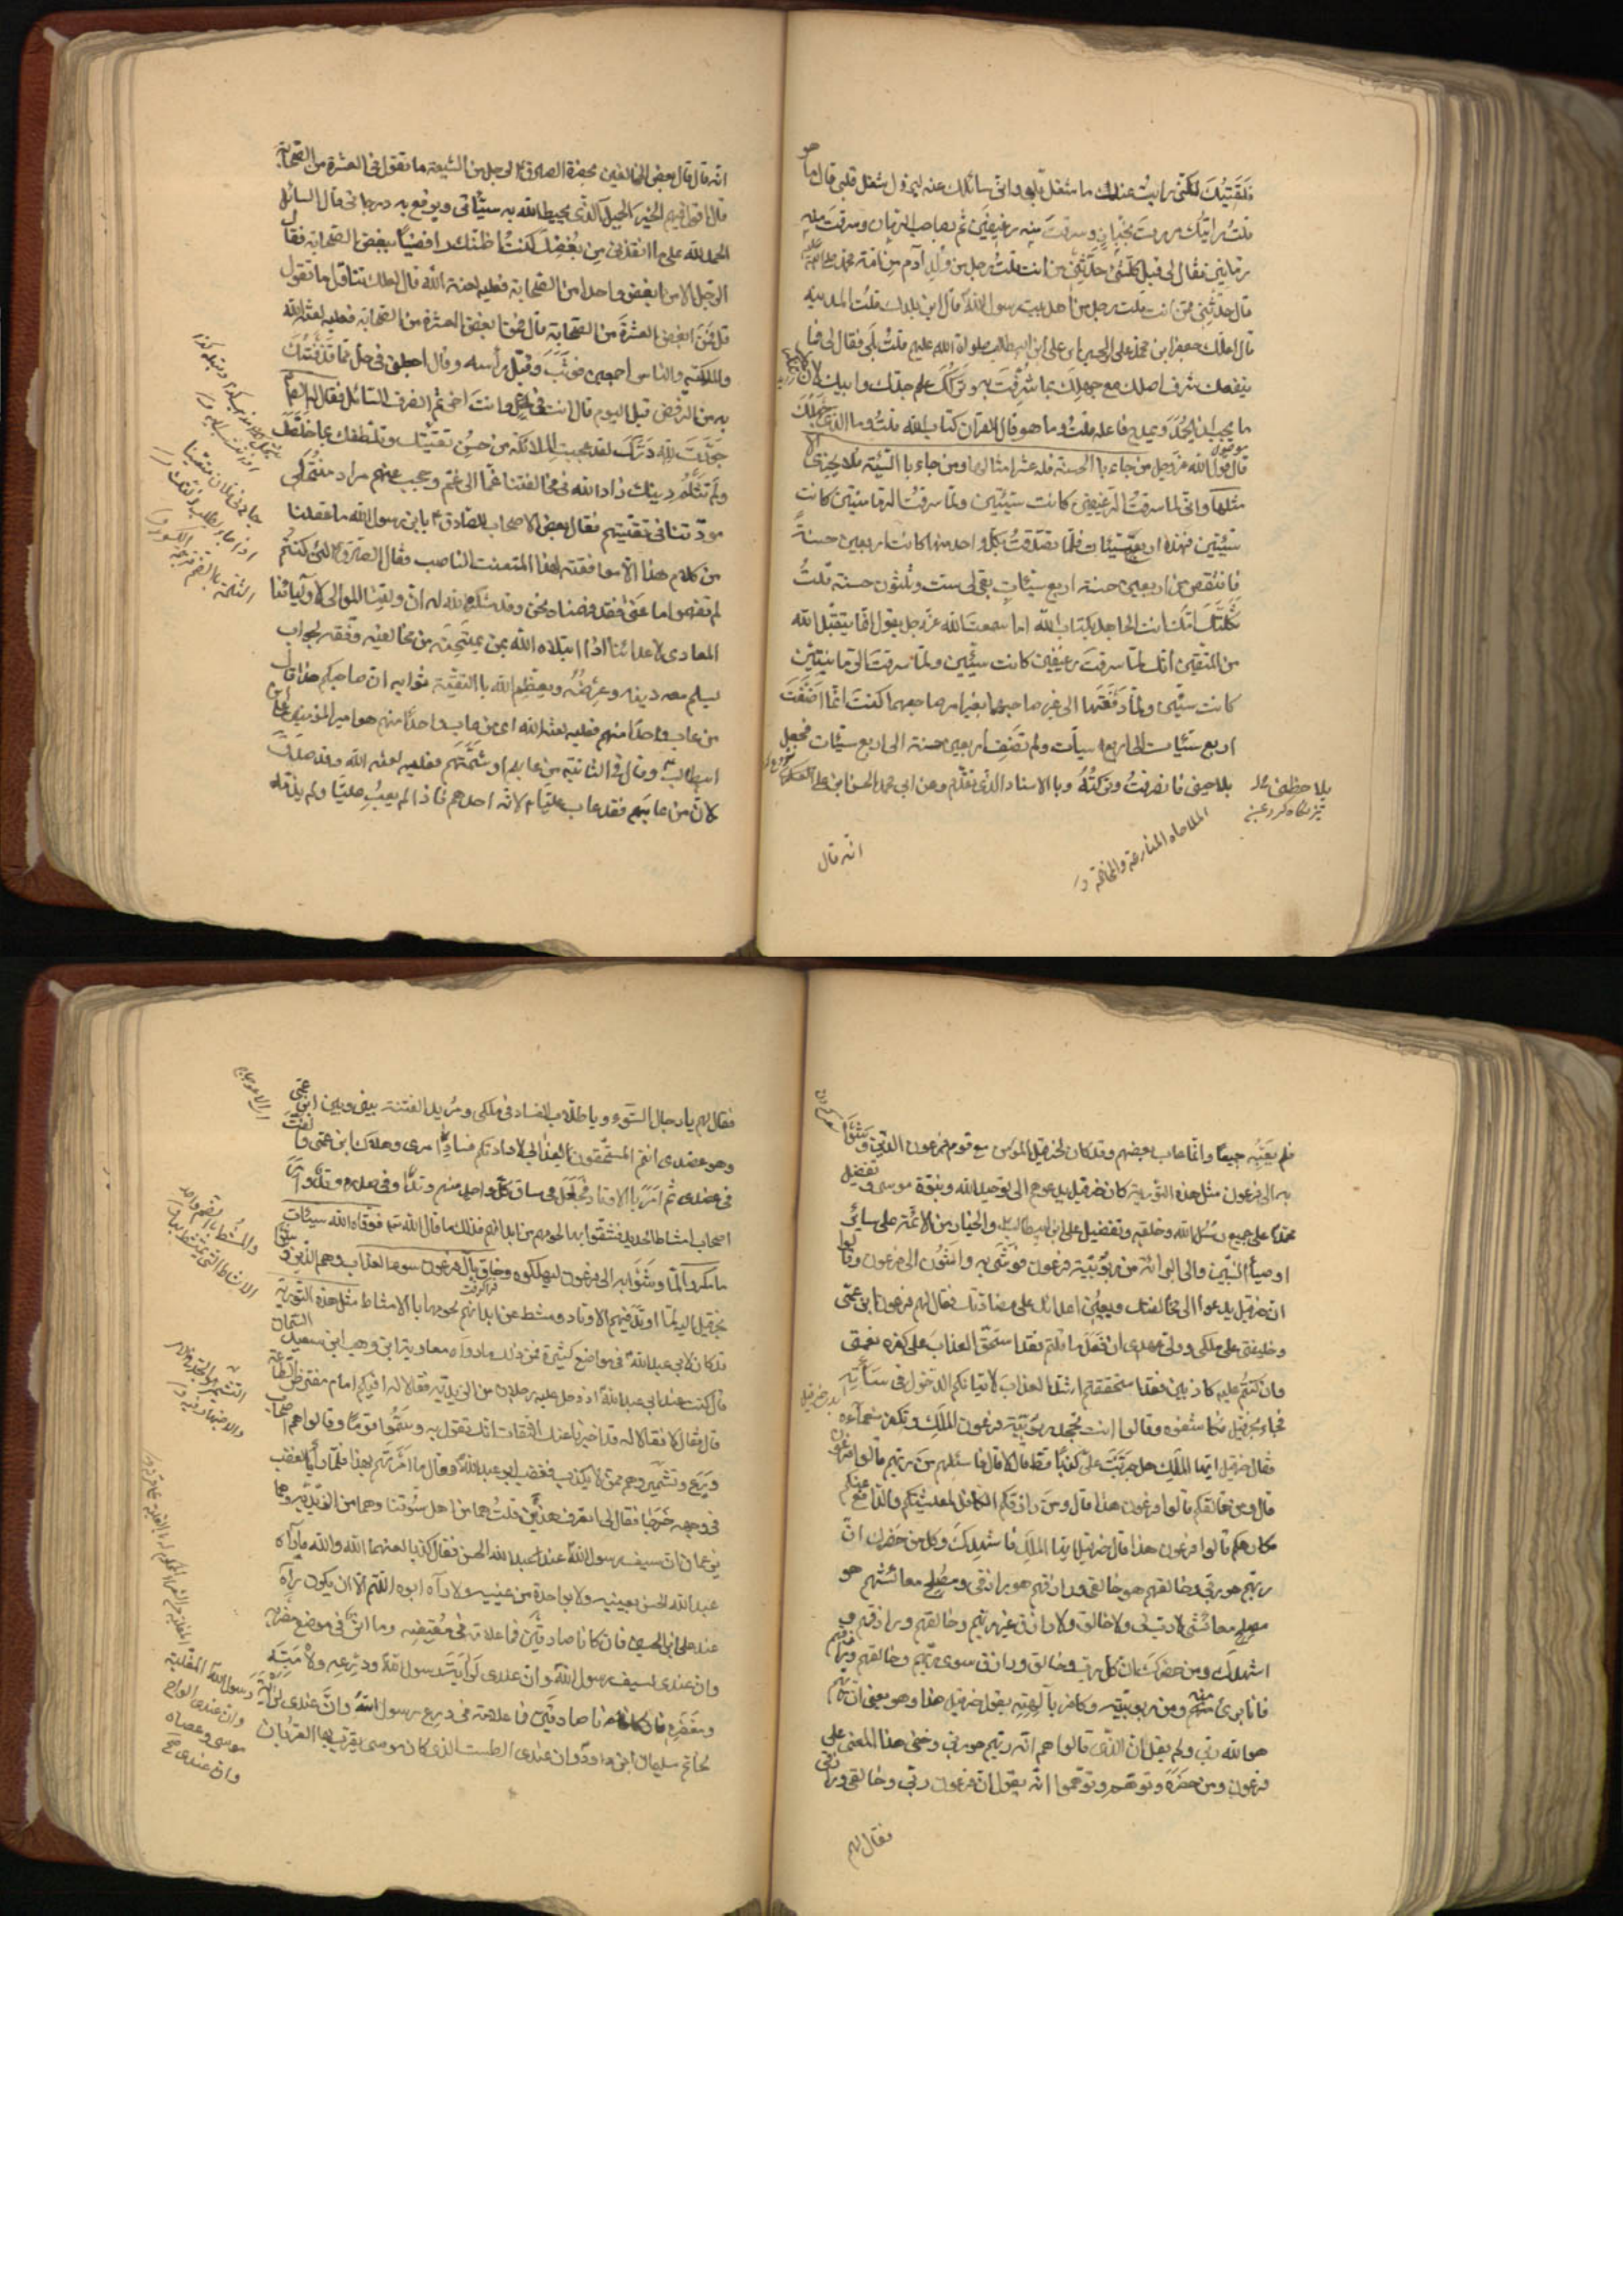 فلقيتك لكنى رايت عندك ما شغل قلبى وانى سائلك عنه ليزول شغل قلبى قال ما هو
قلت رايتك مررت بخباز وسرقت منه رغيفين ثم بصاحب الرمان وسرقت منه
رمانتين فقال لى قبل كلشئ حدثنى من انت قلت رجل من ولد آدم من امة محمد صلى الله عليه
قال حدثنى ممن انت قلت رجل من اهل بيت رسول الله قال اين بلدك قلت المدينة
قال لعلك جعفر ابن محمد على الحسين ابن على ابن ابيطالب صلوات الله عليهم قلت بلى فقال لى فما
ينفعك شرف اصلك مع جهلك بما شرفت به وتركك علم جدك وابيك لان لا ينكر
ما يجب ان يحمد ويمدح فاعله قلت وما هو قال القرآن كتاب الله قلت وما الذى جهلت
قال قول الله عز وجل من جاء با الحسنة فله عشر امثالها ومن جاء با السيئة فلا يجزى الا
مثلها وانى لما سرقت الرغيفين كانت سيئتين ولما سرقت الرمانتين كانت
سيئتين فهذه اربع سيئات فلما تصدقت بكل واحد منها كانت اربعين حسنة
فانتقص من اربعين حسنة اربع سيئات بقى لى ست وثلثون حسنة قلت
ثكلتك امك انت الجاهل بكتاب الله اما سمعت الله عز وجل يقول انما يتقبل الله
من المتقين انك لما سرقت رغيفين كانت سيئتين ولما سرقت الرمانتين
كانت سيئتين ولما دفعتها الى غير صاحبها بغير امر صاحبهما كنت انما اضفت
اربع سيئات الى اربع سيآت ولم تضف اربعين حسنة الى اربع سيئات فجعل
يلاحينى فانصرفت وتركته وبا الاسناد الذى تقدم وعن ابى محمد الحسن ابن على العسكرى
يلاحظنى
الملاحاة المنازعة والمخاصمة
انه قال
انه قال قال بعض المخالفين بحضرة الصادق لرجل من الشيعة ما تقول فى العشرة من الصحابة
قال اقول فيهم الخير الجميل الذى يحيط الله به سيئاتى ويرفع به درجاتى قال السائل
الحمد لله على ما انقذنى من بغضك كنت اظنك رافضيا تبغض الصحابة فقال
الرجل الا من ابغض واحدا من الصحابة فعليه لعنة الله قال لعلك تتاول ما تقول
قل فمن ابغض العشرة من الصحابة قال من ابغض العشرة من الصحابة فعليه لعنة الله
والملئكة والناس اجمعين فوثب وقبل رأسه وقال اجعلنى فى حل مما قذفتك
به من الرفض قبل اليوم قال انت فى حل وانت اخى ثم انصرف السائل فقال له الصادق
جودت لله درك لقد عجبت الملائكة من حسن توريتك وتلطفك بما خلصك
ولم تثلم دينك زاد الله فى مخالفينا غما الى غم وحجب عنهم مراد منتحلى
مودتنا فى تقيتهم فقال بعض الاصحاب الصادق يا ابن رسول الله ما عقلنا
من كلام هذا الا موافقته لهذا المتعنت الناصب فقال الصادق لئن كنتم
لم تفهموا ما عنى فقد فهمناه نحن وقد شكره الله له ان ولينا الموالى لاوليائنا
المعادى لاعدائنا اذا ابتلاه الله بمن يمتحنه من مخالفيه وفقه لجواب
يسلم معه دينه وعرضه ويعظم الله با التقية ثوابه ان صاحبكم هذا قال
من عاب واحدا منهم فعليه لعنة الله اى من عاب واحدا منهم هو امير المؤمنين على ابن
ابيطالب وقال فى الثانية من عابهم او شتمهم فعليه لعنة الله وقد صدق
لان من عابهم فقد عاب عليا لانه احدهم فاذا لم يعب عليا ولم يذمه
فلم يعبهم جميعا وانما عاب بعضهم وقد كان لحزقيل المؤمن مع قوم فرعون الذين وشوا
به الى فرعون مثل هذه التورية كان حزقيل يدعوهم الى توحيد الله ونبوة موسى وتفضيل
محمد على جميع رسل الله وخلقه وتفضيل على ابن ابيطالب والخيار من الائمة على سائر
اوصياء النبيين والى البرائة من ربوبية فرعون فوشى به واشون الى فرعون وقالوا
ان حزقيل يدعوا الى مخالفتك ويعين اعدائك على مضادتك فقال لهم فرعون ابن عمى
وخليفتى على ملكى وولى عهدى ان فعل ما قلتم فقد استحق العذاب على كفره نعمتى
وان كنتم عليه كاذبين فقد استحققتم اشد العذاب لايثاركم الدخول فى مسائته
فجاء بحزقيل وكاشفوه وقالوا انت تجحد ربوبية فرعون الملك وتكفر نعمآءه
فقال حزقيل ايها الملك هل جربت على كذبا قط قال لا قال فاسئلهم من ربهم قالوا فرعون
قال ومن خالقكم قالوا فرعون هذا قال ومن رازقكم الكافل لمعايشكم والدافع عنكم
مكارهكم قالوا فرعون هذا قال حزقيل ايها الملك فاشهدك وكل من حضرك ان
ربهم هو ربى وخالقهم هو خالقى ورازقهم هو رازقى ومصلح معائشهم هو
مصلح معائشى لا رب لى ولا خالق ولا رازق غير ربهم وخالقهم ورازقهم و
اشهدك ومن حضرك ان كل رب وخالق ورازق سوى ربهم وخالقهم ورازقهم
فانا برئ منه ومن ربوبيته وكافر بآلهيته يقول حزقيل هذا وهو يعنى ان ربهم
هو الله ربى ولم يقل ان الذى قالوا هم انه ربهم هو ربى وخفى هذا المعنى على
فرعون ومن حضره وتوهموا انه يقول ان فرعون ربى وخالقى ورازقى
فقال لهم
فقال لهم يا رجال السوء ويا طلاب الفساد فى ملكى ومريد الفتنة بينى وبين ابن عمى
وهو عضدى انتم المستحقون لعذابى لارادتكم فساد امرى وهلاك ابن عمى والفت
فى عضدى ثم امر با الاوتاد فجعل فى ساق كل واحد منهم وتد وفى صدره وتد وامر
اصحاب امشاط الحديد فشقوا بها لحومهم من ابدانهم فذلك ما قال الله تعالى فوقاه الله سيئات
ما مكروا لما وشوا به الى فرعون ليهلكوه وحاق بآل فرعون سوء العذاب وهم الذين وشوا
بحزقيل اليه لما اوتد فيهم الاوتاد ومشط عن ابدانهم لحومها با الامشاط مثل هذه التورية
قد كان لابى عبد الله فى مواضع كثيرة فمن ذلك ما رواه معاوية ابن وهب ابن سعيد السمان
قال كنت عند ابى عبد الله اذ دخل عليه رجلان من الزيدية فقالا له افيكم امام مفترض الطاعة
قال فقال لا فقالا له قد اخبرنا عنك الثقات انك تقول به وسموا قوما وقالوا هم اصحاب
ورع وتشمير وهم ممن لا يكذب فغضب ابو عبد الله وقال ما امرتهم بهذا فلما رأيا الغضب
فى وجهه خرجا فقال لى اتعرف هذين قلت هما من اهل سوقنا وهما من الزيدية وهما
يزعمان ان سيف رسول الله عند عبد الله الحسن فقال كذبا لعنهما الله والله ما رآه
عبد الله الحسن بعينيه ولا بواحدة من عينيه ولا رآه ابوه اللهم الا ان يكون رآه
عند على ابن الحسين فان كانا صادقين فما علامة فى مقبضه وما اثر فى موضع مضربه
وان عندى لسيف رسول الله وان عندى لراية رسول الله ودرعه ولامته
ومغفره فان كانا صادقين فما علامة فى درع رسول الله وان عندى لراية رسول الله المغلبة
وان عندى الواح
موسى وعصاه
وان عندى
لخاتم سليمان ابن داود وان عندى الطست الذى كان موسى يقرب بها القربان